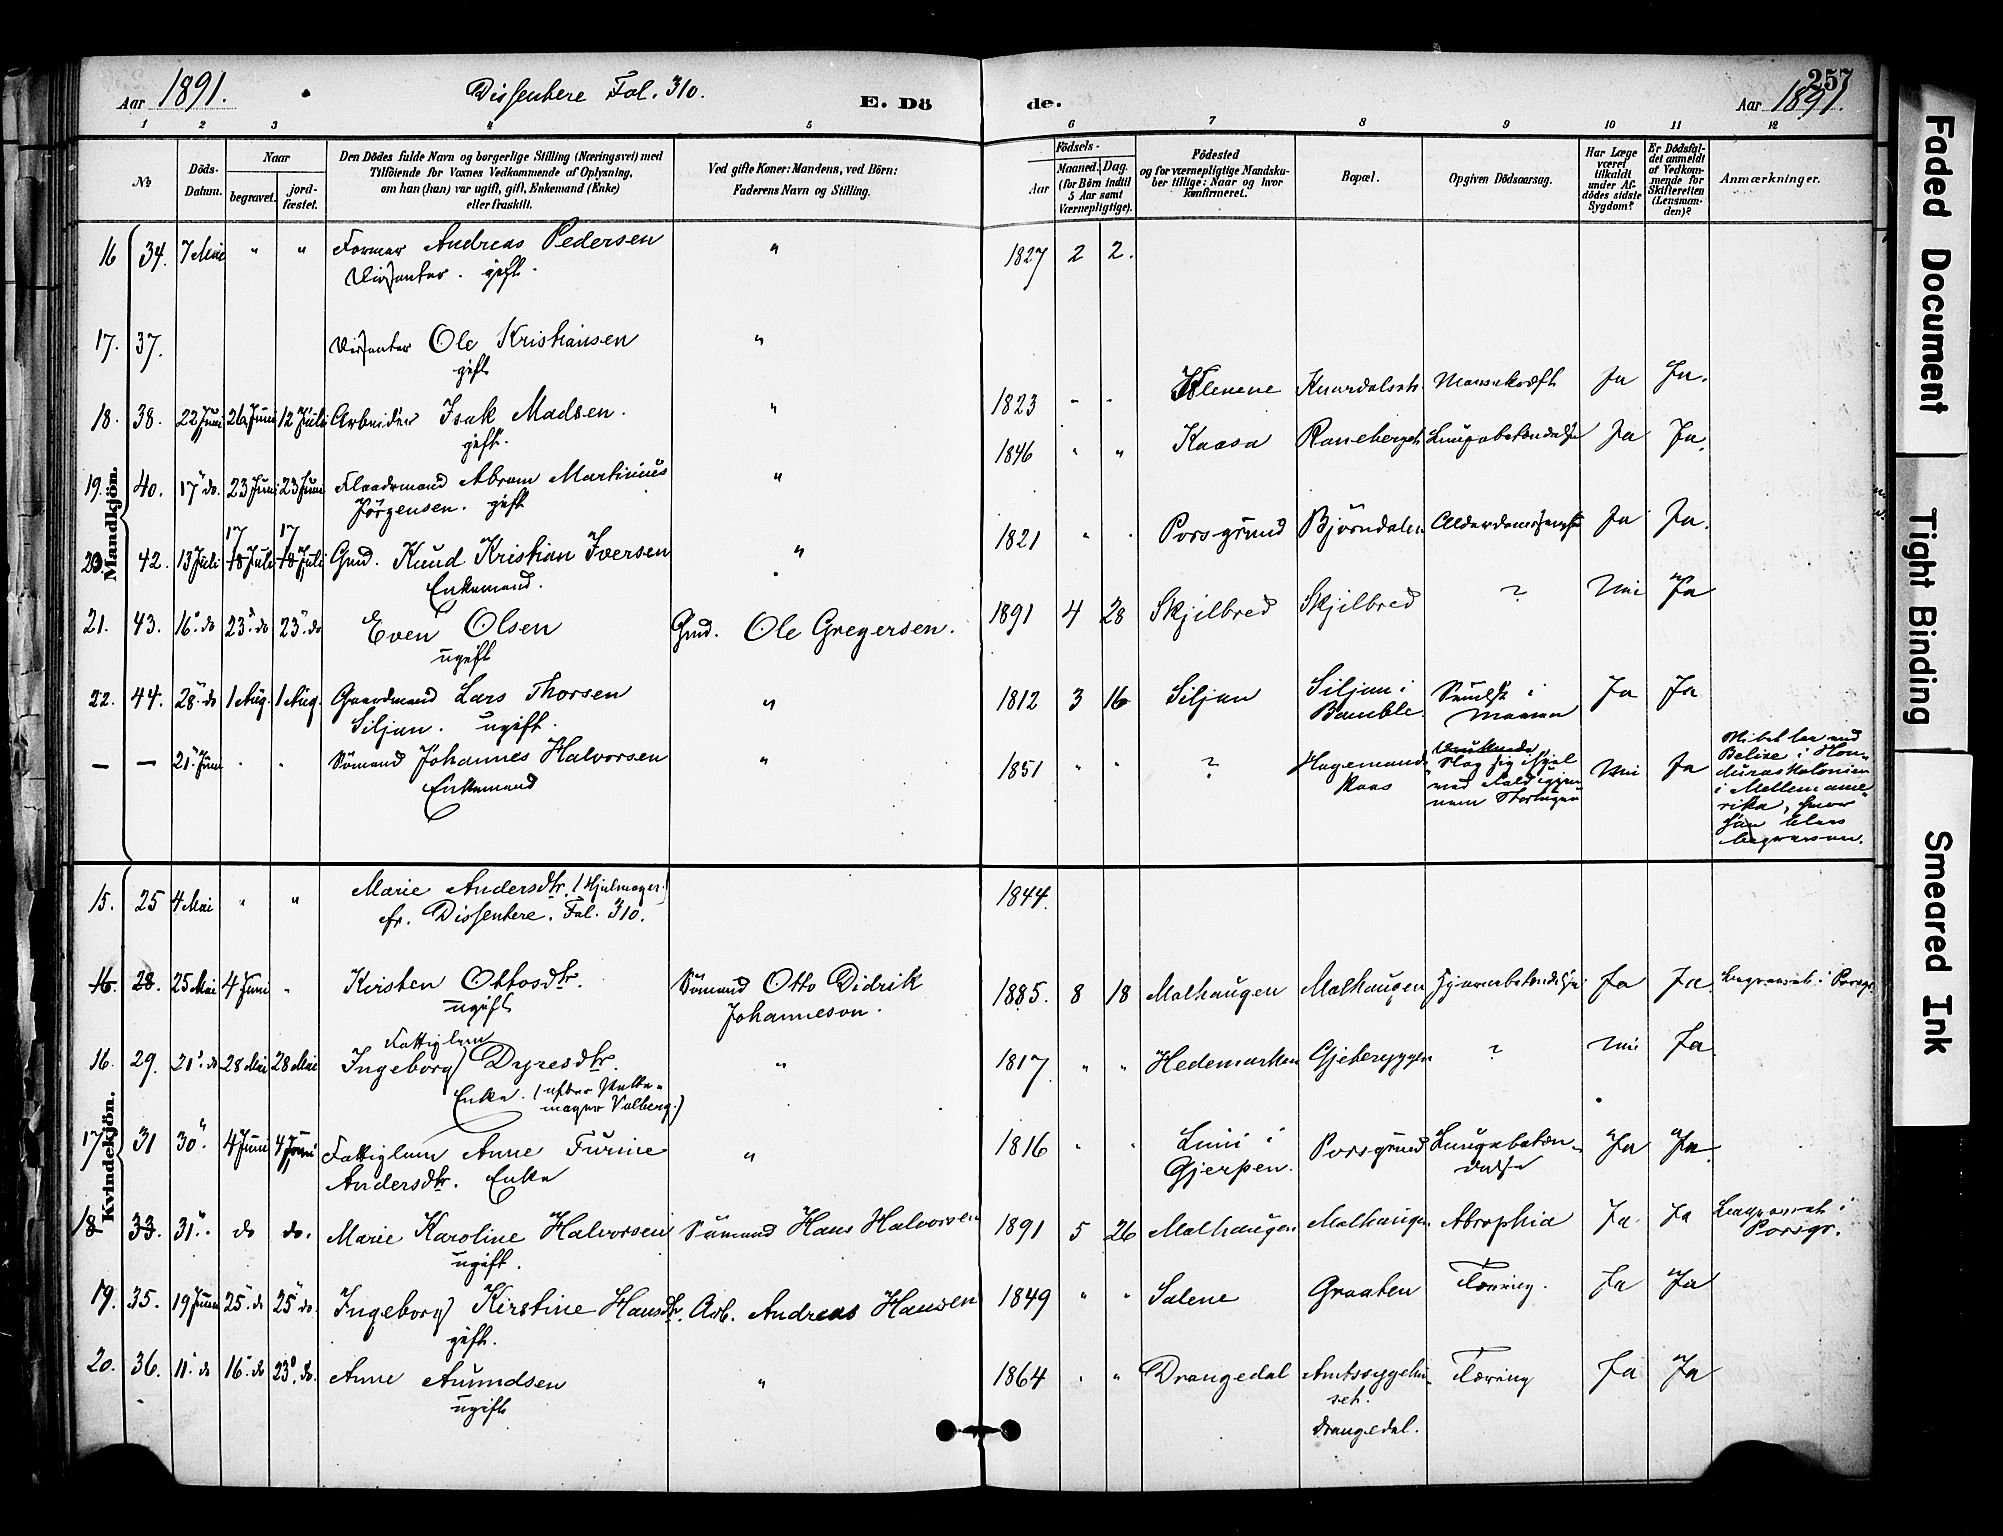 257
Aar 1891. Dissentere Fol. 310. E. Dö de. Aar 1891.
1 2 3 4 5 6 7 8 9 10 11 12
No Döds-Datum. Naar begravet. jord-fæstet. Den Dödes fulde Navn og borgerlige Stilling (Næringsvei) med Tilföiende for Voxnes Vedkommende af Oplysning, om han (hun) var ugift, gift, Enkemand (Enke) eller fraskilt. Ved gifte Koner: Mandens, ved Börn: Faderens Navn og Stilling. Födsels- Aar Maaned. Dag. (for Börn indtil 5 Aar samt Værnepligtige). Födested og for værnepligtige Mandskaber tillige: Naar og hvor konfirmeret. Bopæl. Opgiven Dödsaarsag. Har Læge været tilkaldt under Afdödes sidste Sygdom? Er Dödsfaldet anmeldt af Vedkommende for Skifteretten (Lensmanden)? Anmærkninger.
Mandkjön.
16 34. 7 Mai " " Former Andreas Pedersen " 1827 2 2.
Dissenter. gift.
17. 37. Dissenter Ole Kristiansen "
gift
18. 38. 22 Juni 26 Juni 12 Juli Arbeider Isak Madsen. " 1823 - - Klevene Knardalsstr. Mavekræft Ja Ja.
gift.
19. 40. 17 do. 23 Juni 23 Juni Abram Martinius " 1846 " " Kaasa Lungebetændelse Ja Ja.
Jørgensen. gift
20. 42. 13 Juli 17 18 Juli 17 18 Juli Gmd. Knud Kristian Iversen " 1821 " . Porsgrund Björndalen Ja Ja.
Enkemand.
21. 43. 16" do 23" do 23" do Even Olsen Gmd. Ole Gregersen. 1891 4 28 Skjilbred Skjilbred ? Nei Ja
ugift
22. 44. 28" do 1 Aug. 1 Aug. Gaardmand Lars Thorsen " 1812 3 16 Siljan Siljan i Bamble. i Maven Ja Ja
Siljan. ugift.
— — 21" Juni . . Sømand Johannes Halvorsen " 1851 " " ? Slog sig ihjel ved Fald igjennem Storlugen Nei Ja Belize i Honduraskolonien i Mellemamerika, hvor han blev begraven.
Enkemand
Kvindekjön.
15. 25 4 Mai " " Marie Andersdtr. (Hjulmager) 1844.
cfr. Dissentere. Fol. 310.
16. 28. 25 Mai 4 Juni " Kirsten Ottosdtr. Sømand Otto Didrik 1885. 8 18 Malhaugen Malhaugen Ja Ja. begravet i Porsgr.
ugift Johanneson.
Fattiglem
16. 29. 21" do 28 Mai 28 Mai Ingeborg Dyresdtr. " 1817. " " Hedemarken Gjeteryggen ? Nei Ja.
Enke. (efter Valberg.)
17 31 30". 4 Juni 4 Juni Fattiglem Anne Turine " 1816 " " Lini i Gjerpen. Porsgrund Lungebetændelse Ja Ja.
Andersdtr. Enke
18 33. 31". do do. Marie Karoline Halvorsen Sømand Hans Halvorsen 1891 5 26 Malhaugen Malhaugen Atrophia Ja. Ja begravet i Porsgr.
ugift.
19. 35. 19 Juni 25" do 25" do. Ingeborg Kirstine Hansdtr. Arb. Andreas Hansen 1849 " " Salene Graaten Tæring. Ja Ja
gift.
20. 36. 11" do 16" do 23" do. Anne Amundsen " 1864 " " Drangedal Amtssygehuset. Drangedal. Tæring Ja Ja
ugift
Faded Document
Tight Binding
Smeared Ink